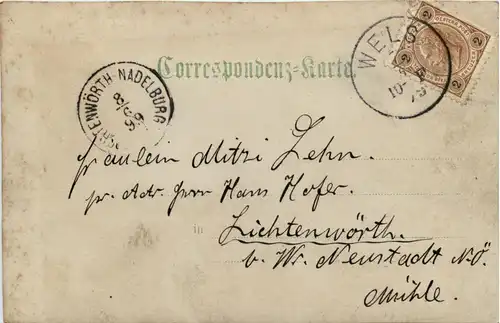 Correspondenz-Karte.
WELS
2
2
LICHTENWÖRTH-NADELBURG
8/6
99
Fräulein Mitzi Lehn.
pr. Adr. Herr Hans Hofer.
in
Lichtenwörth.
b. Wr. Neustadt N.Ö.
Mühle.